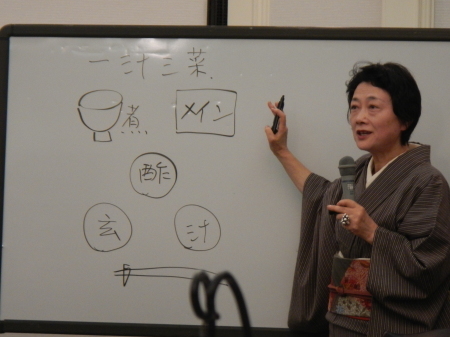 一汁三菜
煮 メイン
酢
玄 汁